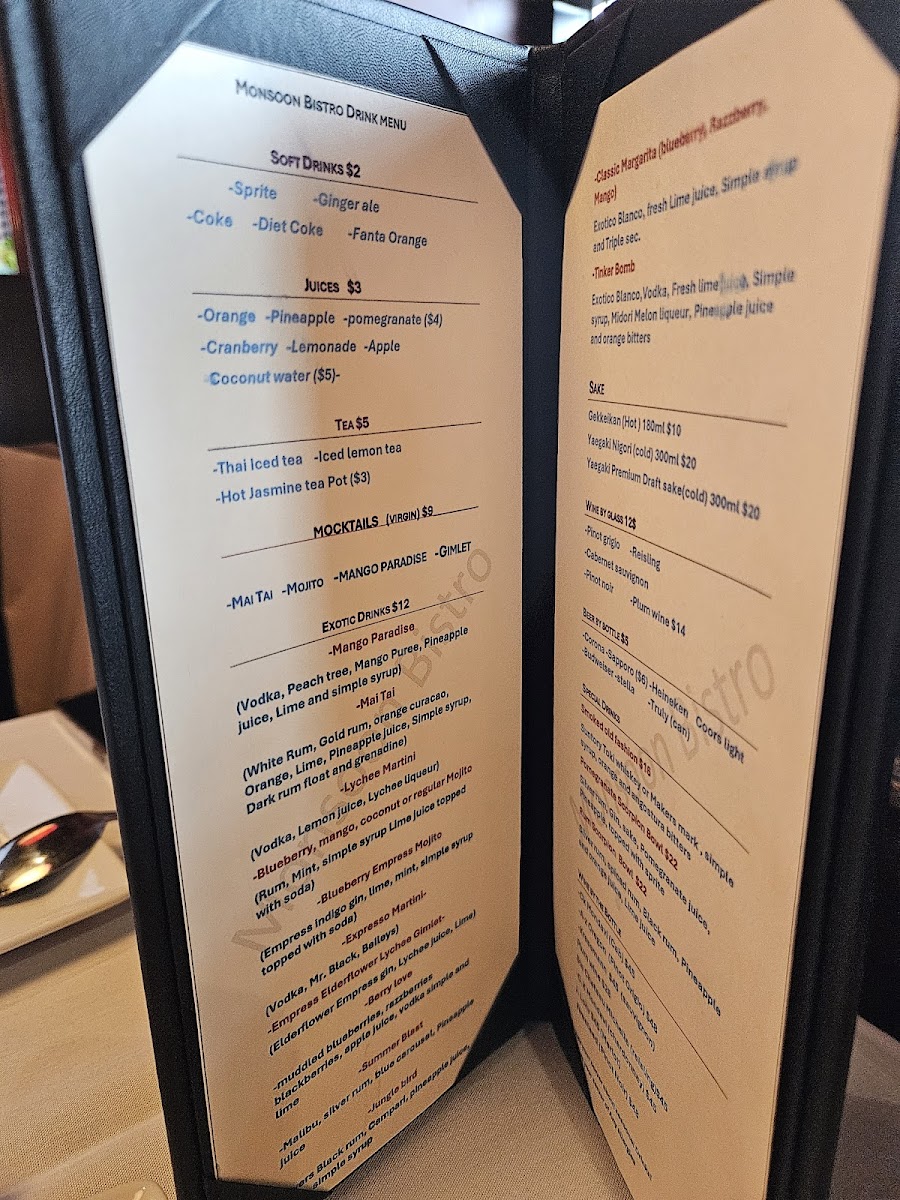 MONSOON BISTRO DRINK MENU
SOFT DRINKS $2
-Sprite -Ginger ale
-Coke -Diet Coke -Fanta Orange
JUICES $3
-Orange -Pineapple -pomegranate ($4)
-Cranberry -Lemonade -Apple
Coconut water ($5)-
TEA $5
-Thai Iced tea -Iced lemon tea
-Hot Jasmine tea Pot ($3)
MOCKTAILS (VIRGIN) $9
-MAI TAI -MOJITO -MANGO PARADISE -GIMLET
EXOTIC DRINKS $12
-Mango Paradise
(Vodka, Peach tree, Mango Puree, Pineapple
juice, Lime and simple syrup)
-Mai Tai
(White Rum, Gold rum, orange curacao,
Orange, Lime, Pineapple juice, Simple syrup,
Dark rum float and grenadine)
-Lychee Martini
(Vodka, Lemon juice, Lychee liqueur)
-Blueberry, mango, coconut or regular Mojito
(Rum, Mint, simple syrup Lime juice topped
with soda)
-Blueberry Empress Mojito
(Empress indigo gin, lime, mint, simple syrup
topped with soda)
-Expresso Martini-
(Vodka, Mr. Black, Baileys)
-Empress Elderflower Lychee Gimlet-
(Elderflower Empress gin, Lychee juice, Lime)
-Berry love
-muddled blueberries, razzberries
blackberries, apple juice, vodka simple and
lime
-Summer Blast
-Malibu, silver rum, blue carousel, Pineapple
juice
-Jungle bird
Black rum, Campari, pineapple juice,
simple syrup
Monsoon Bistro
-Classic Margarita (blueberry, Razzberry,
Mango)
Exotico Blanco, fresh Lime juice, Simple syrup
and Triple sec.
-Tinker Bomb
Exotico Blanco,Vodka, Fresh lime juice, Simple
syrup, Midori Melon liqueur, Pineapple juice
and orange bitters
SAKE
Gekkeikan (Hot ) 180ml $10
Yaegaki Nigori (cold) 300ml $20
Yaegaki Premium Draft sake(cold) 300ml $20
WINE BY GLASS 12$
-Pinot grigio -Reisling
-Cabernet sauvignon
-Pinot noir -Plum wine $14
BEER BY BOTTLE $5
-Corona -Sapporo ($6) -Heineken Coors light
-Budweiser -stella -Truly (can)
SPECIAL DRINKS
Smoked old fashion $16
Suntory Toki whiskey or Makers mark , simple
syrup, orange and angostura bitters
Pomegranate Scorpion Bowl $22
Silver rum, Gin, sake, Pomegranate juice,
Pineapple, topped with sprite
Scorpion Bowl $22
spiced rum, Black rum, Pineapple
juice, Lime juice
Bistro